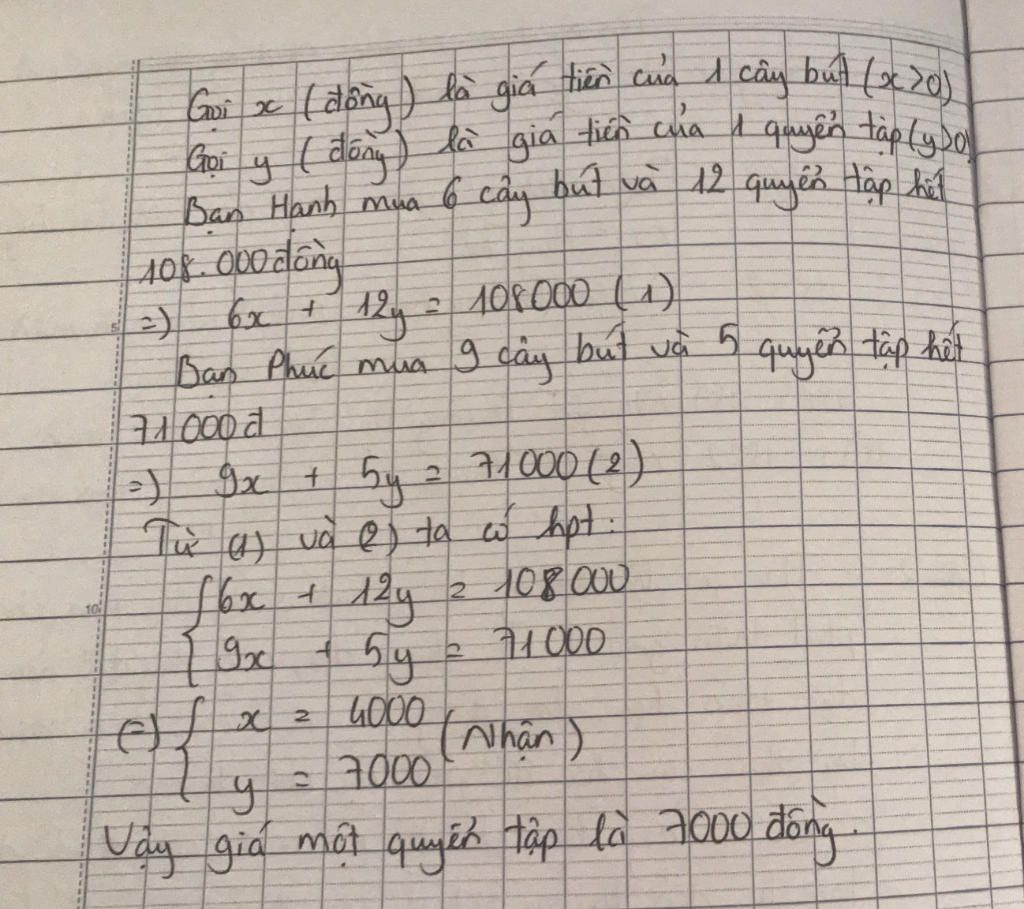 Gọi x (đồng) là giá tiền của 1 cây bút (x>0)
Gọi y (đồng) là giá tiền của 1 quyển tập (y>0)
Bạn Hạnh mua 6 cây bút và 12 quyển tập hết
108.000 đồng
=) 6x + 12y = 108000 (1)
Bạn Phúc mua 9 cây bút và 5 quyển tập hết
71000đ
=) 9x + 5y = 71000 (2)
Từ (1) và (2) ta có hpt:
{ 6x + 12y = 108000
9x + 5y = 71000
(=) { x = 4000 (Nhận)
y = 7000
Vậy giá một quyển tập là 7000 đồng.
5
10